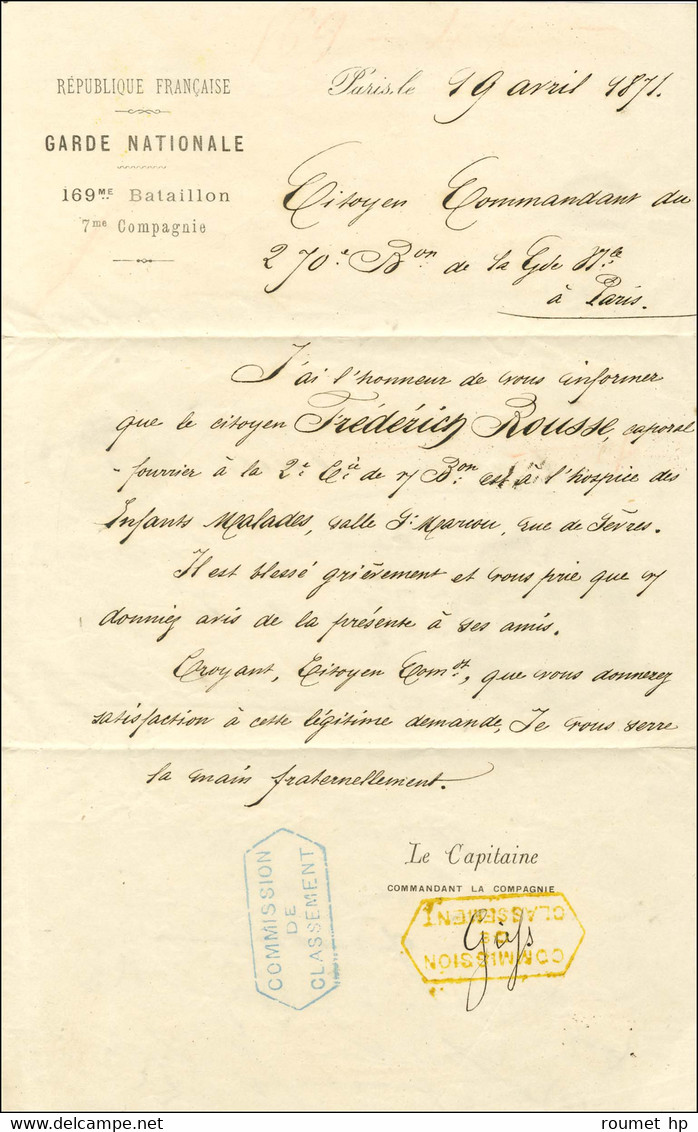 RÉPUBLIQUE FRANÇAISE
GARDE NATIONALE
169ME Bataillon
7me Compagnie
Paris, le 19 avril 1871.
Citoyen Commandant du
270e Bon de la Gde Nle
à Paris.
J'ai l'honneur de vous informer
que le citoyen Frédérich Rousse, caporal
-fourrier à la 2e Cie de v/ Bon est à l'hospice des
Enfants Malades, salle St Marcou, rue de Sèvres.
Il est blessé grièvement et vous prie que v/
donniez avis de la présente à ses amis.
Croyant, Citoyen Comdt, que vous donnerez
satisfaction à cette légitime demande, Je vous serre
la main fraternellement.
Le Capitaine
COMMANDANT LA COMPAGNIE
COMMISSION
DE
CLASSEMENT
COMMISSION
DE
CLASSEMENT
www.delcampe.net
roumet hp